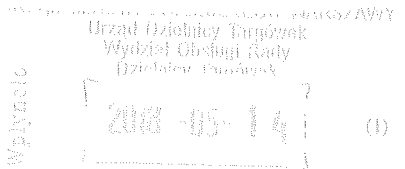 WARSZAWY
Urząd Dzielnicy Targówek
Wydział Obsługi Rady
Dzielnicy Targówek
Wpłynęło
2018 -05- 14
(1)